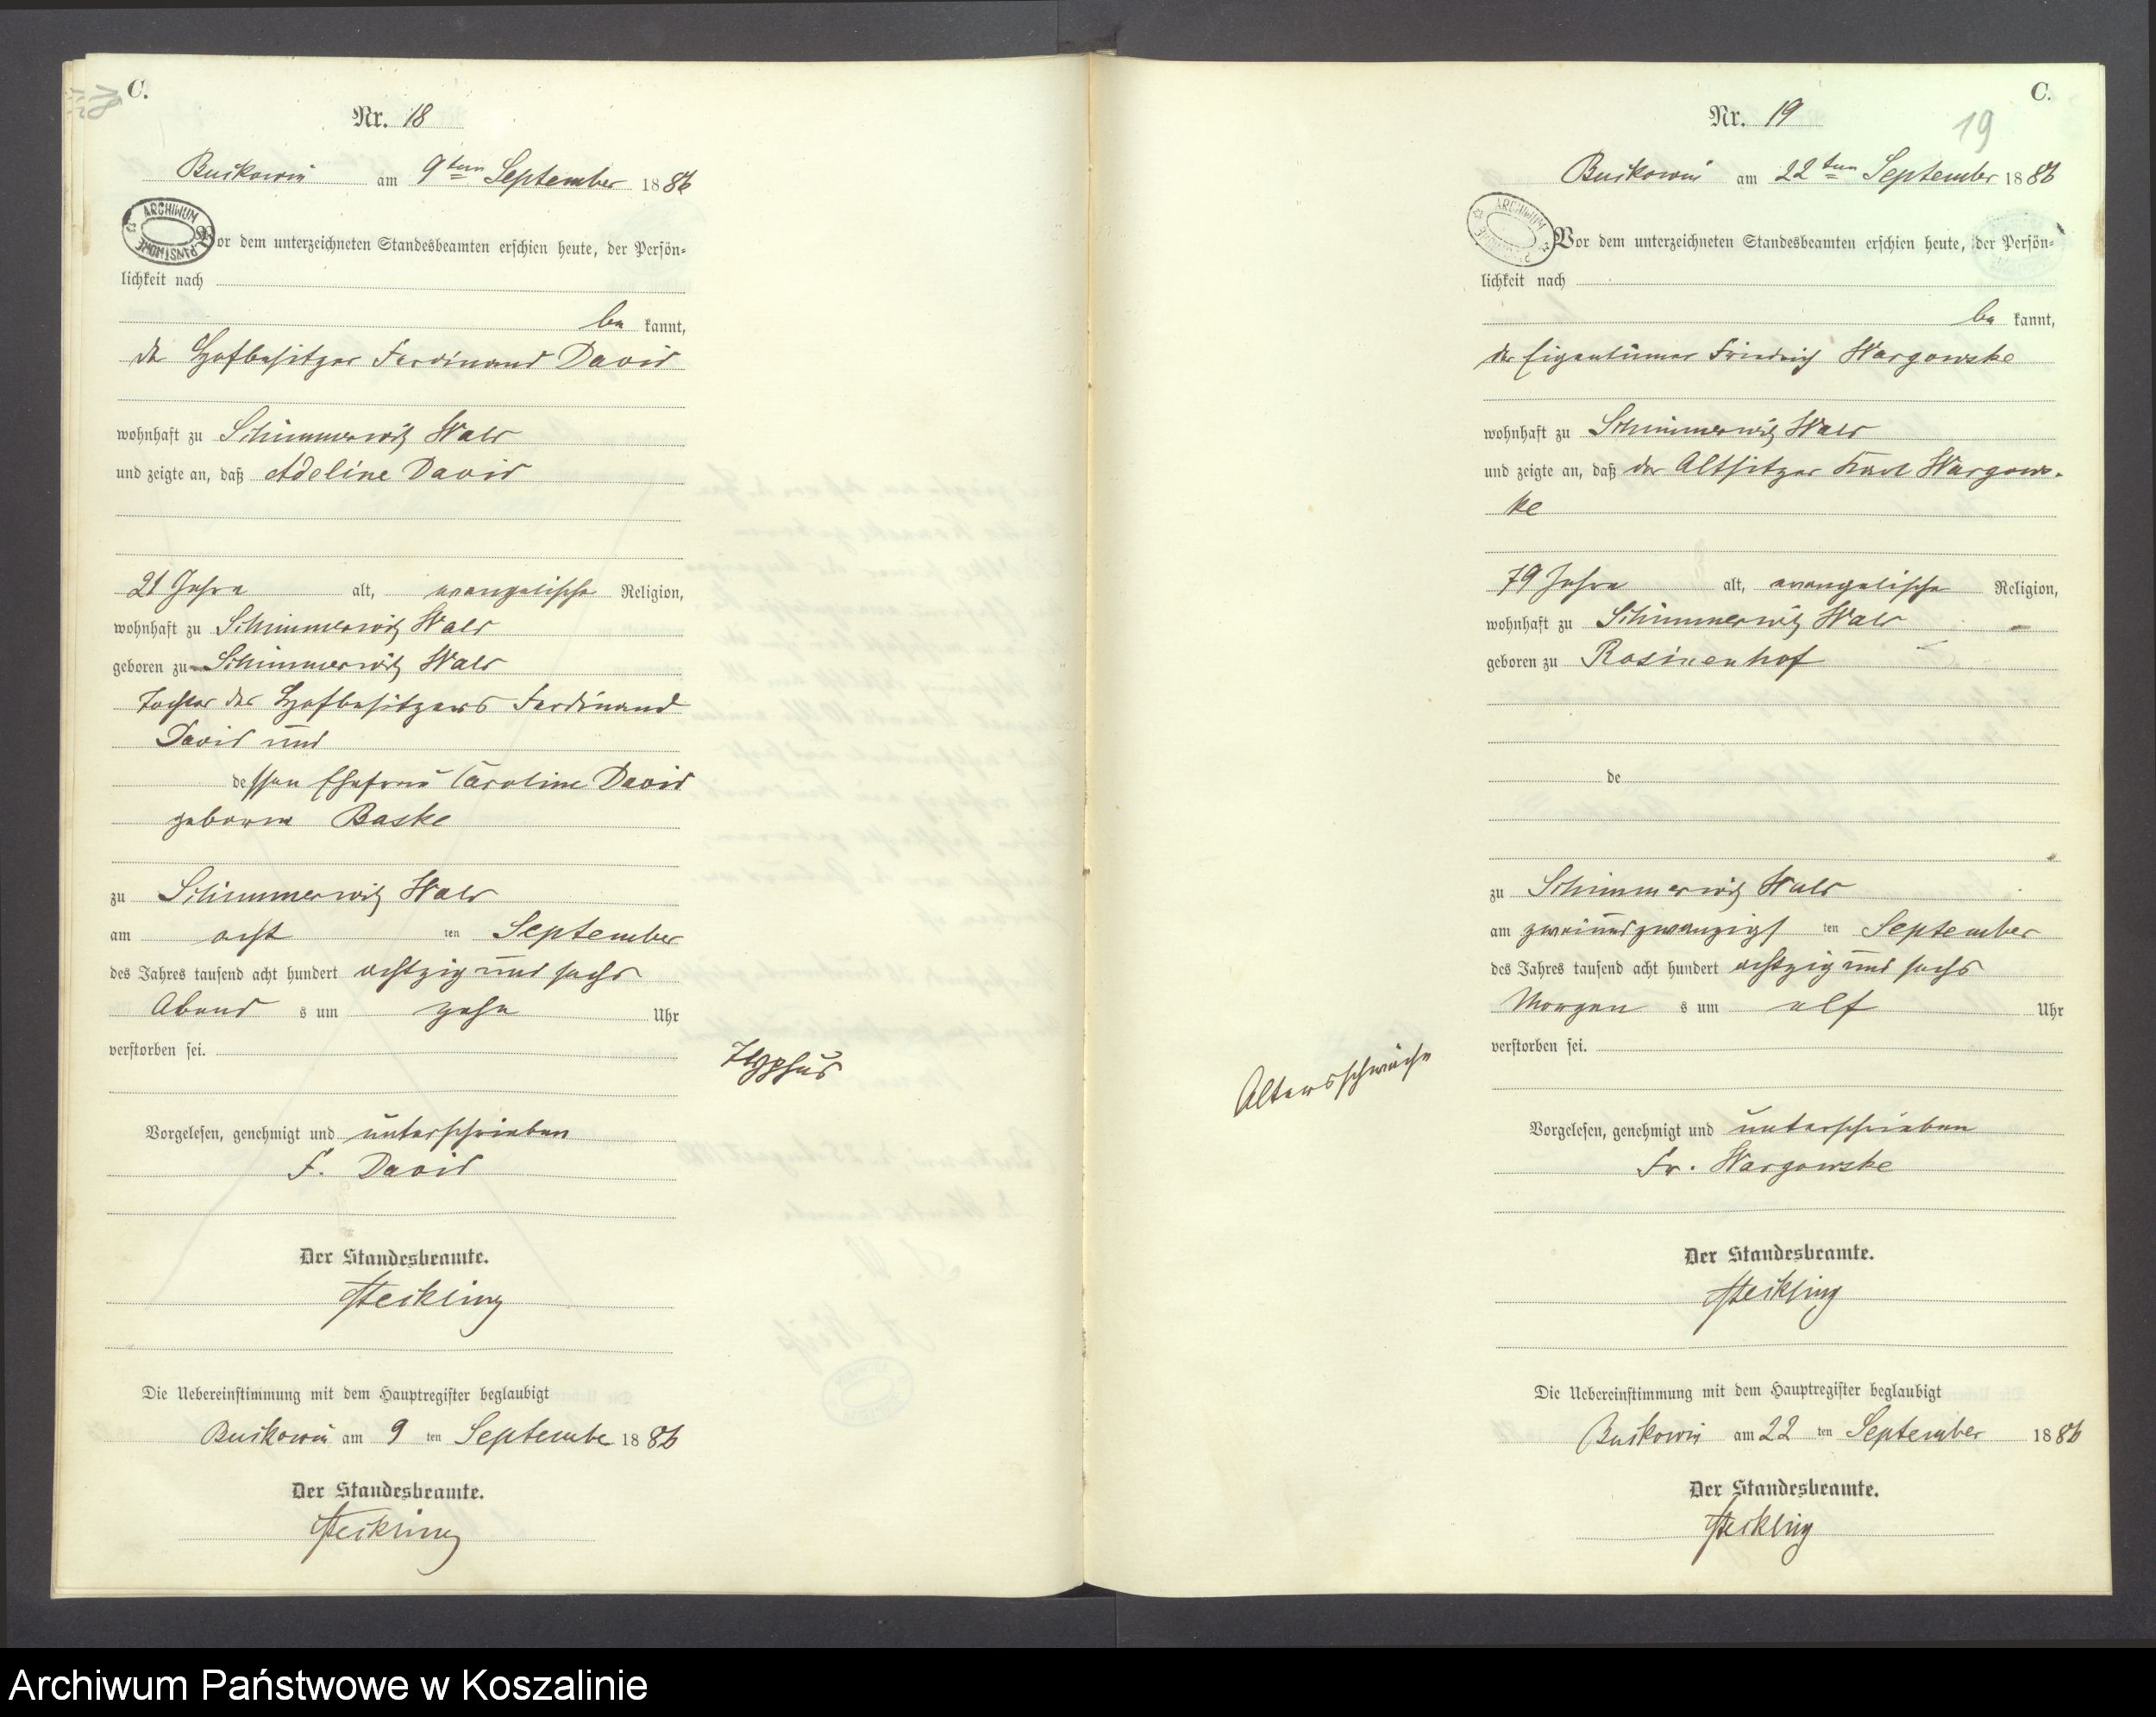 C.
Nr. 18
Buckowin am 9ten September 1886
ARCHIWUM PAŃSTWOWE
Vor dem unterzeichneten Standesbeamten erschien heute, der Persön-
lichkeit nach
be kannt,
der Hofbesitzer Ferdinand David
wohnhaft zu Schimmerwitz Wald
und zeigte an, daß Adeline David
21 Jahre alt, evangelische Religion,
wohnhaft zu Schimmerwitz Wald
geboren zu Schimmerwitz Wald
Tochter des Hofbesitzers Ferdinand
David und
dessen Ehefrau Caroline David
geborne Baske
zu Schimmerwitz Wald
am acht ten September
des Jahres tausend acht hundert achtzig und sechs
Abend s um zehn Uhr
verstorben sei.
Typhus
Vorgelesen, genehmigt und unterschrieben
F. David
Der Standesbeamte.
Steckling
Die Uebereinstimmung mit dem Hauptregister beglaubigt
Buckowin am 9 ten September 1886
Der Standesbeamte.
Steckling
C.
Nr. 19
19
Buckowin am 22ten September 1886
ARCHIWUM
Vor dem unterzeichneten Standesbeamten erschien heute, der Persön-
lichkeit nach
be kannt,
der Eigentümer Friedrich Wargowske
wohnhaft zu Schimmerwitz Wald
und zeigte an, daß der Altsitzer Karl Wargows-
ke
79 Jahre alt, evangelische Religion,
wohnhaft zu Schimmerwitz Wald
geboren zu Rosinenhof
de
zu Schimmerwitz Wald
am zweiundzwanzigs ten September
des Jahres tausend acht hundert achtzig und sechs
Morgen s um elf Uhr
verstorben sei.
Altersschwäche
Vorgelesen, genehmigt und unterschrieben
Fr. Wargowske
Der Standesbeamte.
Steckling
Die Uebereinstimmung mit dem Hauptregister beglaubigt
Buckowin am 22 ten September 1886
Der Standesbeamte.
Steckling
Archiwum Państwowe w Koszalinie